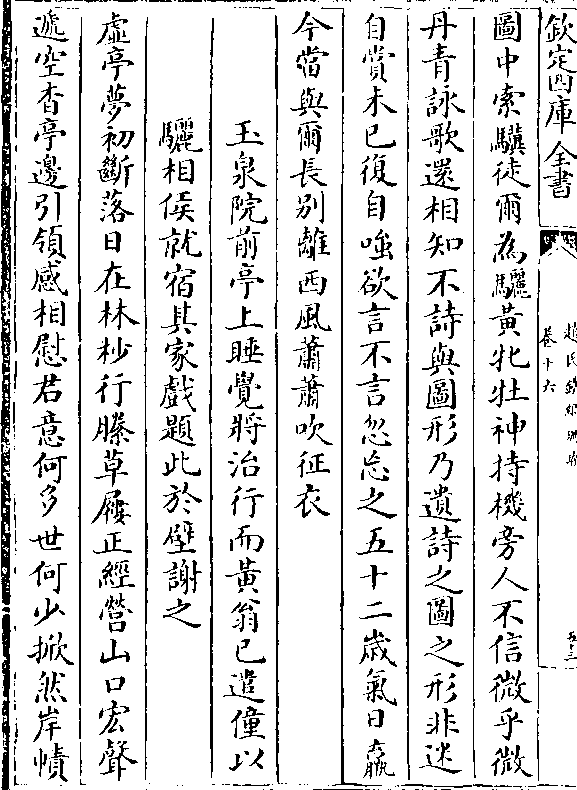 欽定四庫全書
趙氏鐵網珊瑚
卷十六
圖中索驥徒爾為驪黃牝牡神持機旁人不信微乎微
丹青詠歌還相知不詩與圖形乃遺詩之圖之形非迷
自賞未已復自嗤欲言不言忽忘之五十二歲氣日羸
今當與爾長别離西風蕭蕭吹征衣
玉泉院前亭上睡覺將治行而黃翁已遣僮以
驪相候就宿其家戲題此於壁謝之
虛亭夢初斷落日在林杪行縢草屨正經營山口宏聲
遞空杳亭邊引領感相慰君意何多世何少掀然岸幘